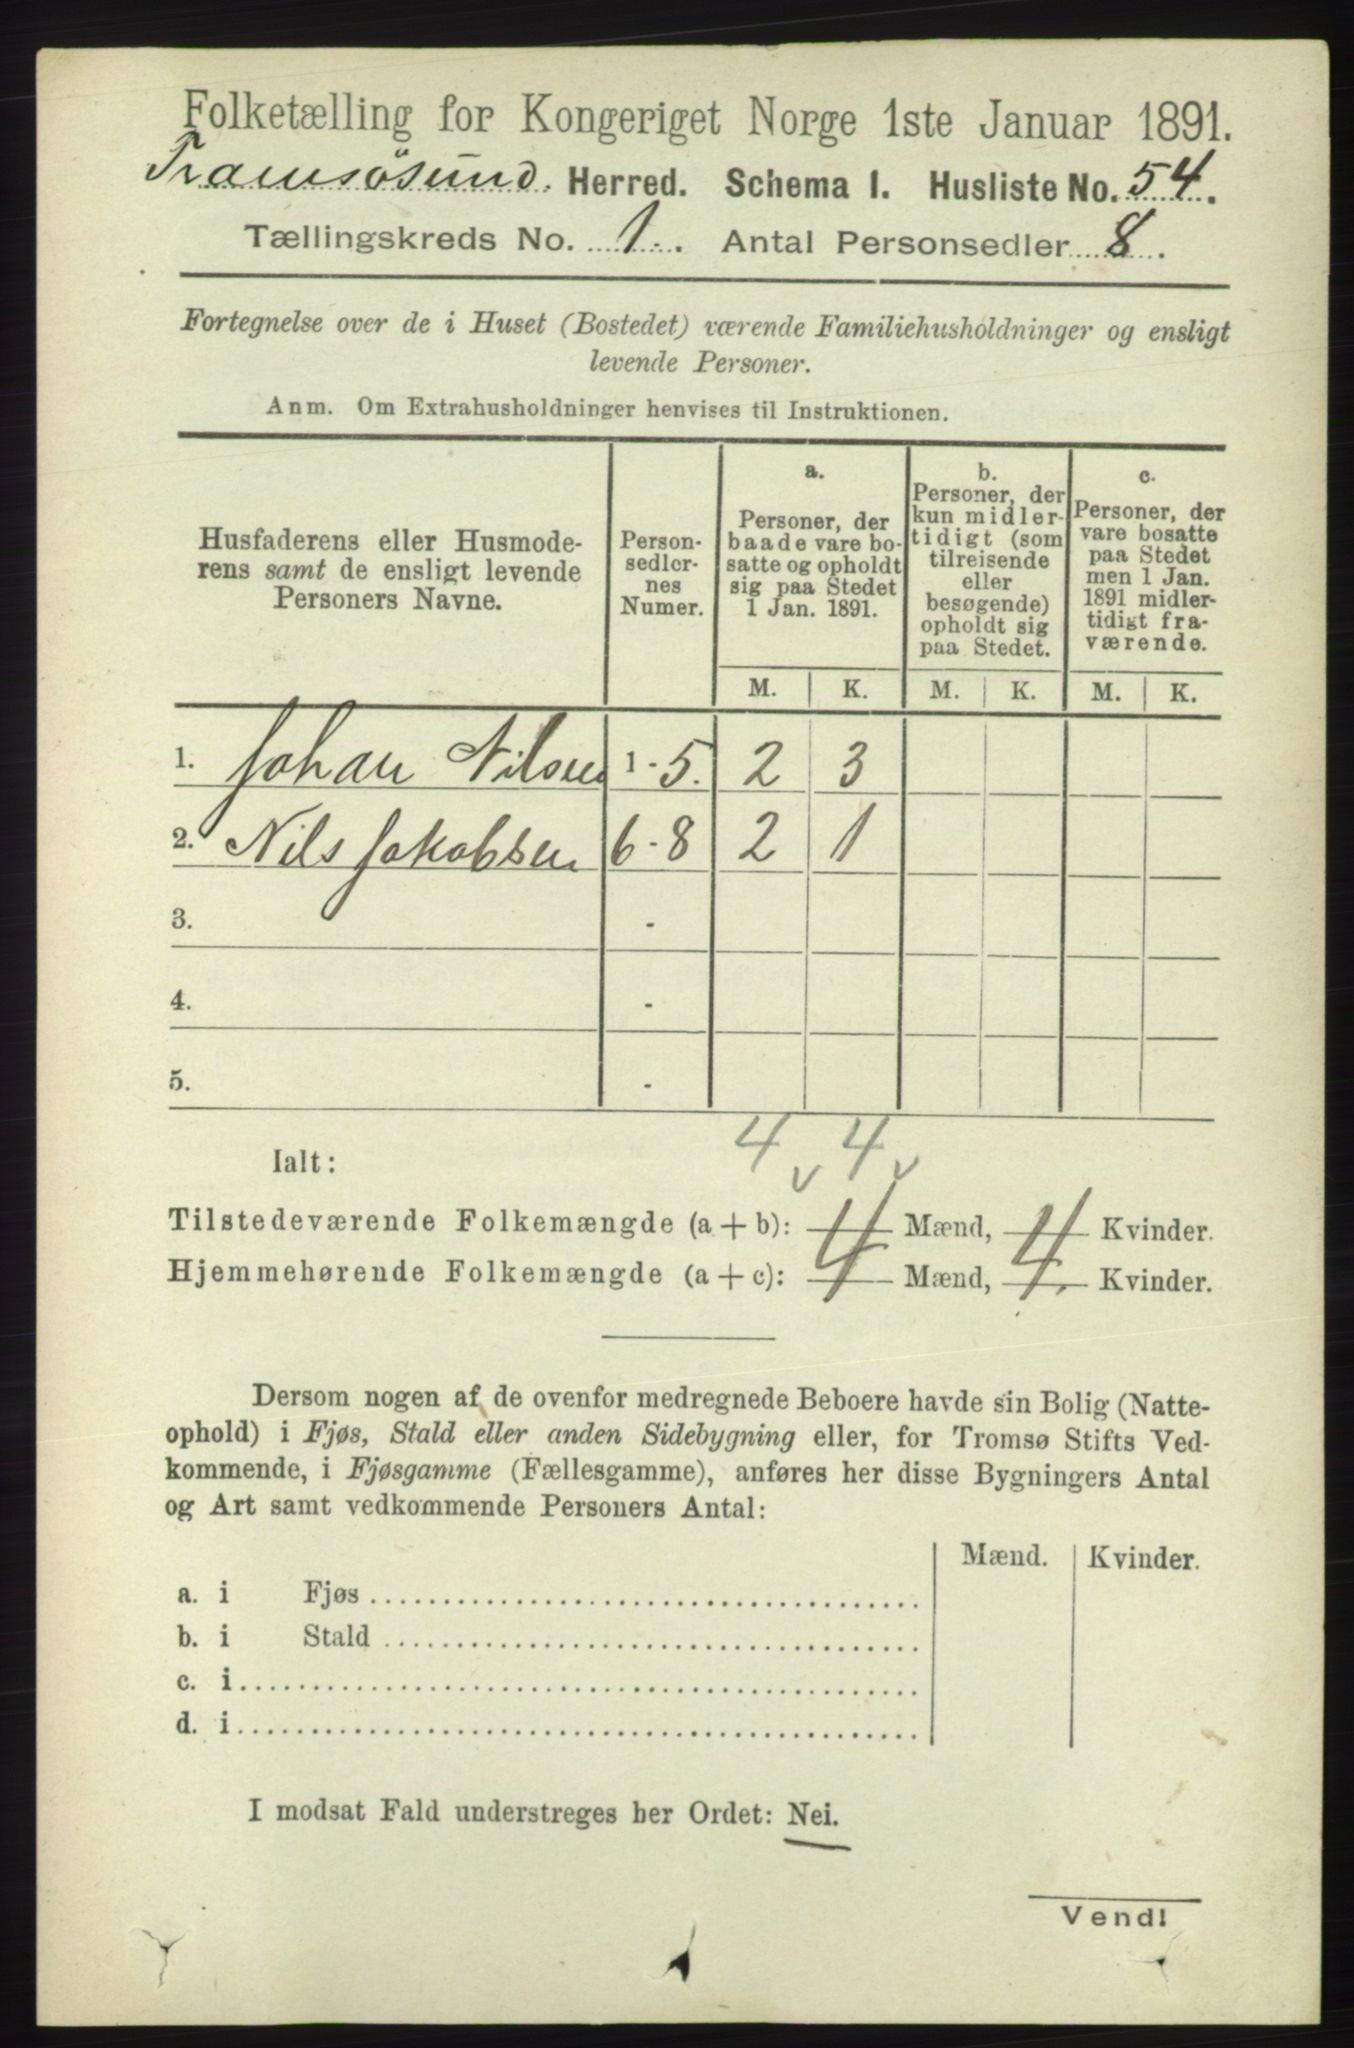 Folketælling for Kongeriget Norge 1ste Januar 1891.
Tromsösund Herred. Schema I. Husliste No. 54.
Tællingskreds No. 1. Antal Personsedler 8.
Fortegnelse over de i Huset (Bostedet) værende Familiehusholdninger og ensligt
levende Personer.
Anm. Om Extrahusholdninger henvises til Instruktionen.
Husfaderens eller Husmode-
rens samt de ensligt levende
Personers Navne.
Person-
sedler-
nes
Numer.
a.
Personer, der
baade vare bo-
satte og opholdt
sig paa Stedet
1 Jan. 1891.
b.
Personer, der
kun midler-
tidigt (som
tilreisende
eller
besøgende)
opholdt sig
paa Stedet.
c.
Personer, der
vare bosatte
paa Stedet
men 1 Jan.
1891 midler-
tidigt fra-
værende.
M. K. M. K. M. K.
1. Johan Nilsen 1-5. 2 3
2. Nils Jakobsen 6-8 2 1
3. -
4. -
5. -
4 v 4 v
Ialt:
Tilstedeværende Folkemængde (a + b): 4 Mænd, 4 Kvinder.
Hjemmehørende Folkemængde (a + c): 4 Mænd, 4. Kvinder.
Dersom nogen af de ovenfor medregnede Beboere havde sin Bolig (Natte-
ophold) i Fjøs, Stald eller anden Sidebygning eller, for Tromsø Stifts Ved-
kommende, i Fjøsgamme (Fællesgamme), anføres her disse Bygningers Antal
og Art samt vedkommende Personers Antal:
Mænd. Kvinder.
a. i Fjøs
b. i Stald
c. i
d. i
I modsat Fald understreges her Ordet: Nei.
Vend!